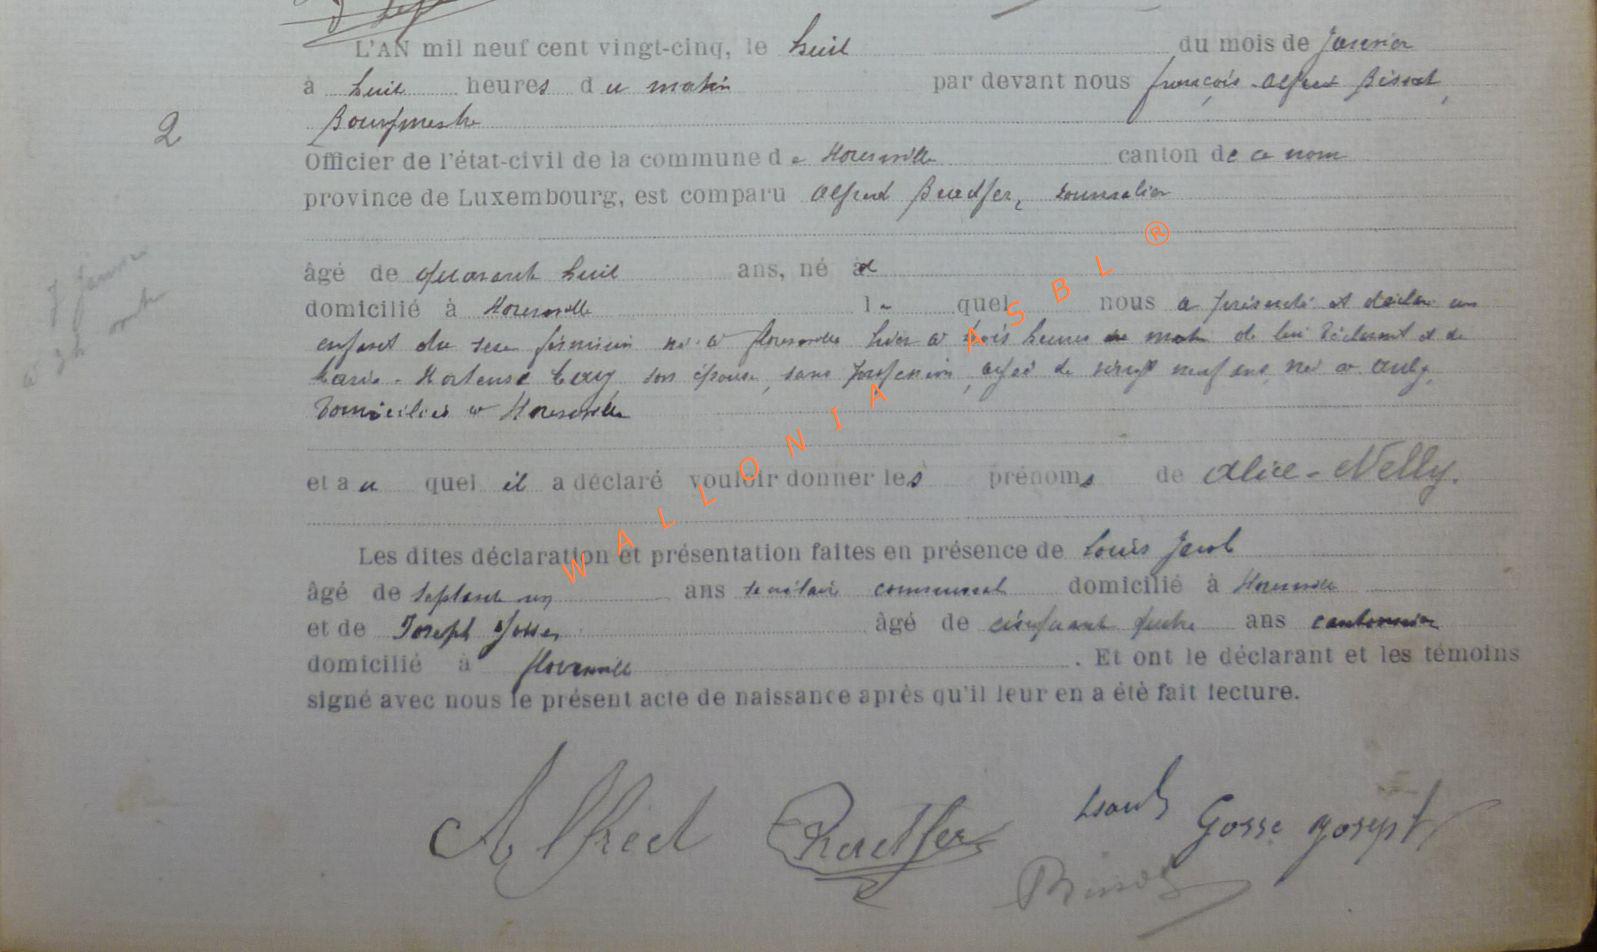 L'AN mil neuf cent vingt-cinq, le huit du mois de Janvier
à huit heures du matin par devant nous françois-Alfred Bissot,
Bourgmestre
2
Officier de l'état-civil de la commune de Florenville canton de ce nom
province de Luxembourg, est comparu Alfred journalier
âgé de quarante huit ans, né à
domicilié à Florenville le quel nous a présenté et déclaré un
enfant du sexe féminin né à florenville hier à trois heures du matin de lui déclarant et de
Marie-Hortense son épouse, sans profession, agée de vingt neuf ans, né à
domiciliés à Florenville
et au quel il a déclaré vouloir donner les prénoms de Alice-Nelly.
Les dites déclaration et présentation faites en présence de Louis Jacob
âgé de septante un ans secrétaire communal domicilié à Florenville
et de Joseph Gosse âgé de cinquante quatre ans cantonnier
domicilié à florenville. Et ont le déclarant et les témoins
signé avec nous le présent acte de naissance après qu'il leur en a été fait lecture.
Alfred
Gosse Joseph
WALLONIA ASBL ®